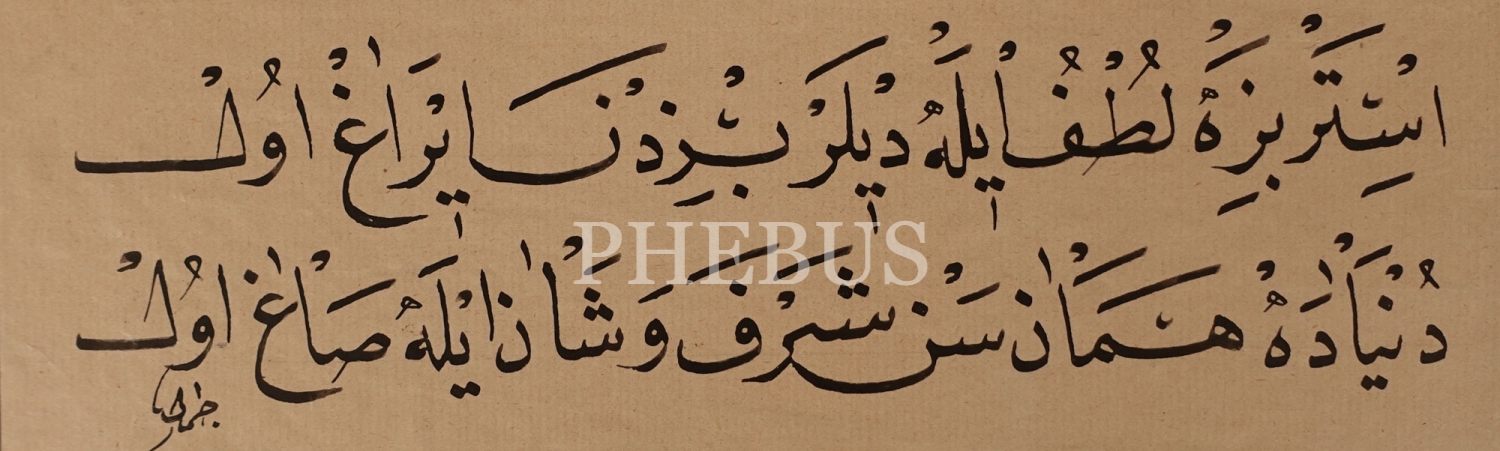 اِسْتَرْ بِزِهْ لُطْفُ اِيلَهْ دِيلَرْ بِزْدِنْ يَرَاغْ اُولْ
دُنْيَادَهْ هَمَانْ سَنْ شَرَفْ وَشَانْ اِيلَهْ صَاغْ اُولْ
PHEBUS